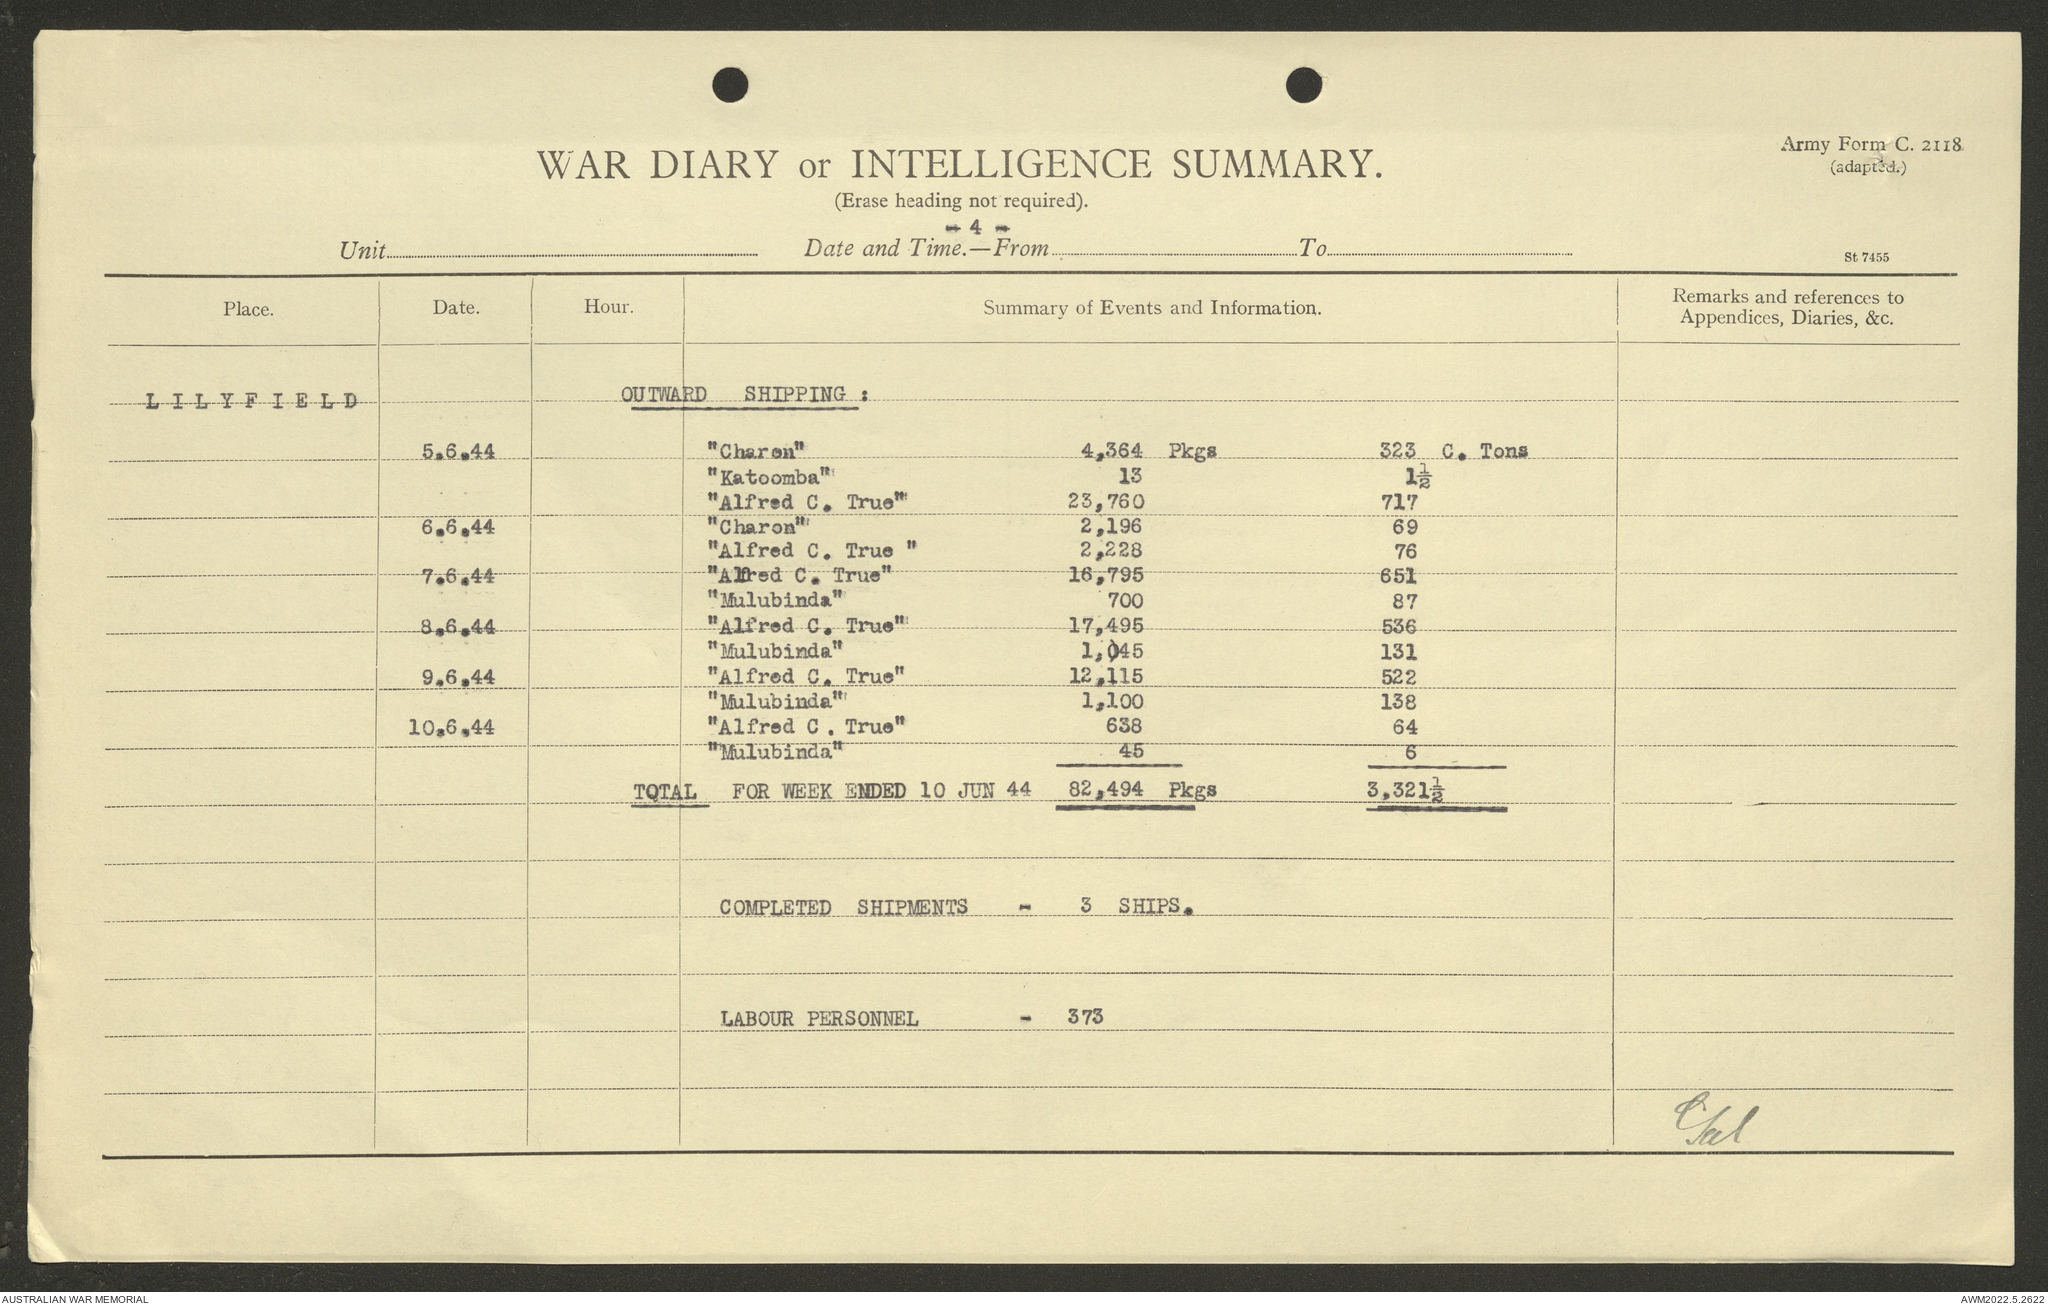 Army Form C. 2118
(adapted.)
WAR DIARY or INTELLIGENCE SUMMARY.
(Erase heading not required).
- 4 -
Unit Date and Time.—From To
St 7455
Place. Date. Hour. Summary of Events and Information. Remarks and references to
Appendices, Diaries, &c.
LILYFIELD OUTWARD SHIPPING :
5.6.44 "Charon" 4,364 Pkgs 323 C. Tons
"Katoomba" 13 1½
"Alfred C. True" 23,760 717
6.6.44 "Charon" 2,196 69
"Alfred C. True " 2,228 76
7.6.44 "Alfred C. True" 16,795 651
"Mulubinda" 700 87
8.6.44 "Alfred C. True" 17,495 536
"Mulubinda" 1,045 131
9.6.44 "Alfred C. True" 12,115 522
"Mulubinda" 1,100 138
10.6.44 "Alfred C . True" 638 64
"Mulubinda" 45 6
TOTAL FOR WEEK ENDED 10 JUN 44 82,494 Pkgs 3,321½
COMPLETED SHIPMENTS - 3 SHIPS.
LABOUR PERSONNEL - 373
AUSTRALIAN WAR MEMORIAL AWM2022.5.2622